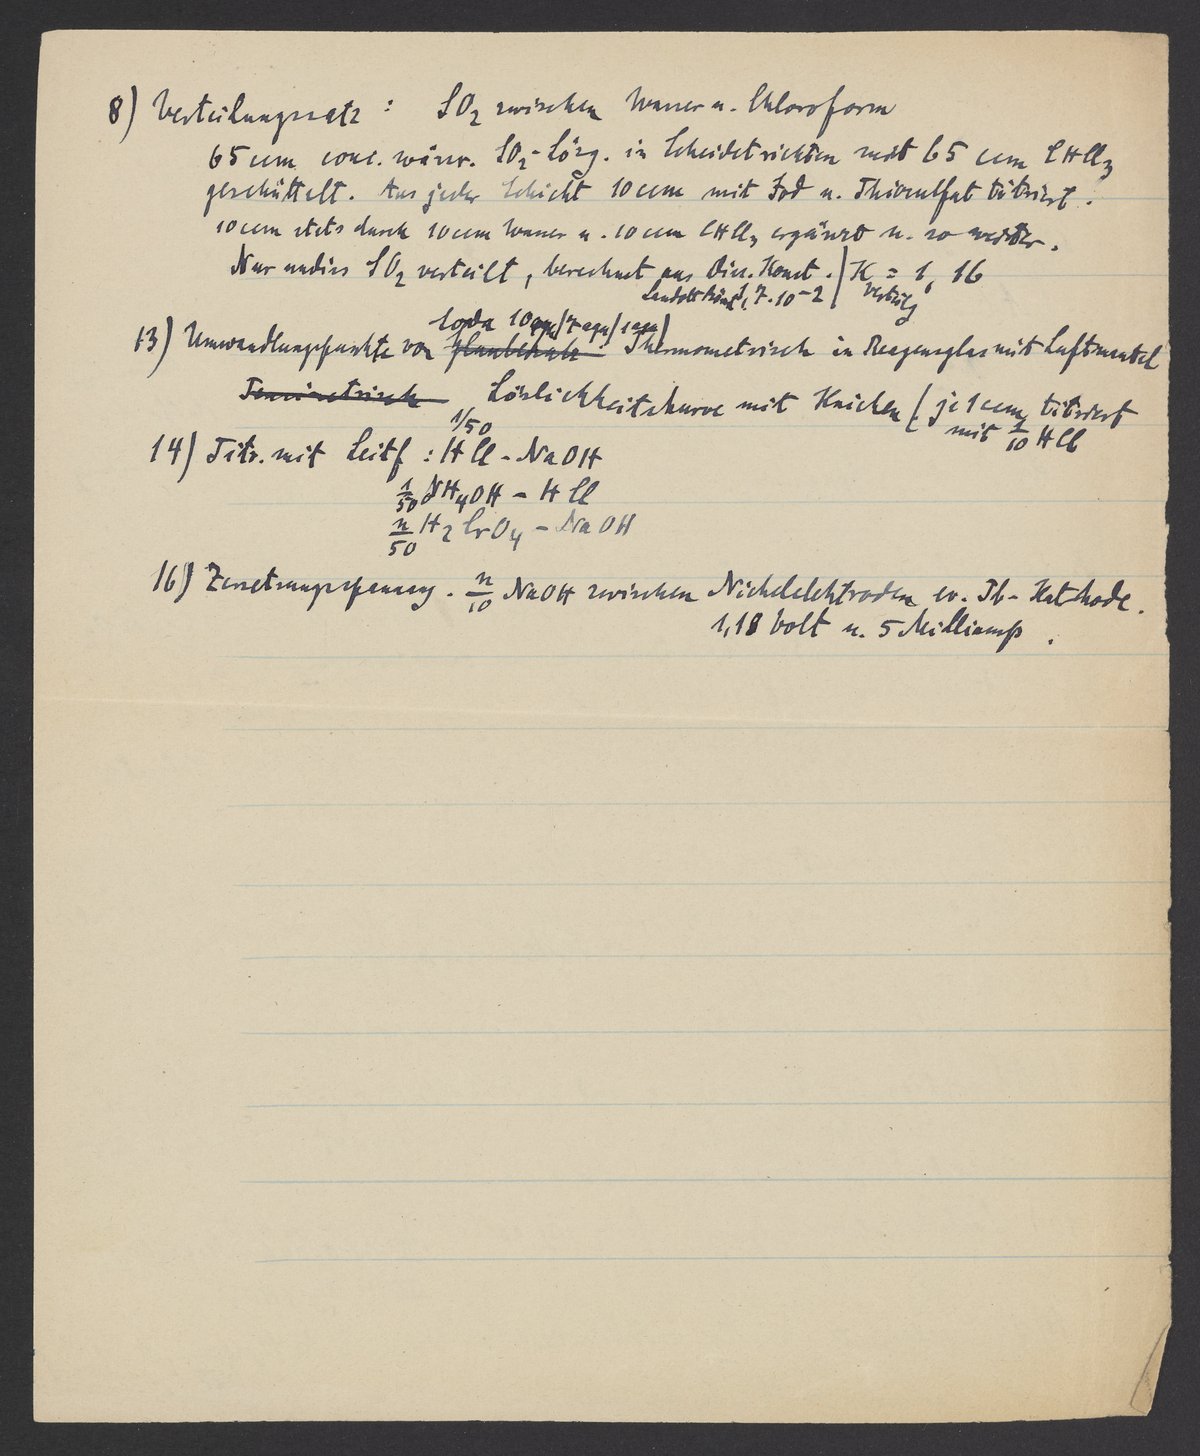 8) Verteilungssatz : SO2 zwischen Wasser u. Chloroform
65 ccm conc. wässr. SO2-Lösg. in Scheidetrichter mit 65 ccm CHCl3
geschüttelt. Aus jeder Schicht 10 ccm mit Jod u. Thiosulfat titriert.
10 ccm stets durch 10 ccm Wasser u. 10 ccm CHCl3 ergänzt u. so weiter.
Nur undiss SO2 verteilt, berechnet aus Diss. Konst. K = 1,16
Landolt Börnst. 1,7.10-2 Verteilg
Soda 10 aqu/7 aqu/1 aqu
13) Umwandlungspunkte von Glaubersalz Thermometrisch in Reagensglas mit Luftmantel
Tensimetrisch Löslichkeitskurve mit Knicken ( je 1 ccm titriert
mit 1/10 HCl
1/50
14) Titr. mit Leitf : HCl - NaOH
1/50 NH4OH - HCl
n/50 H2CrO4 - NaOH
16) Zersetzungsspannung. n/10 NaOH zwischen Nickelelektroden ev. Pb-Kathode.
1,18 Volt u. 5 Milliamp.